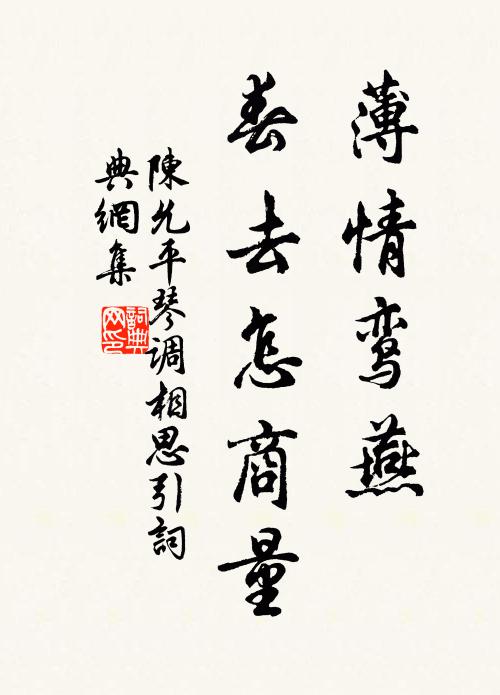 薄情鸾燕
春去怎商量
陳允平琴调相思引詞
典網集
詞典
网印